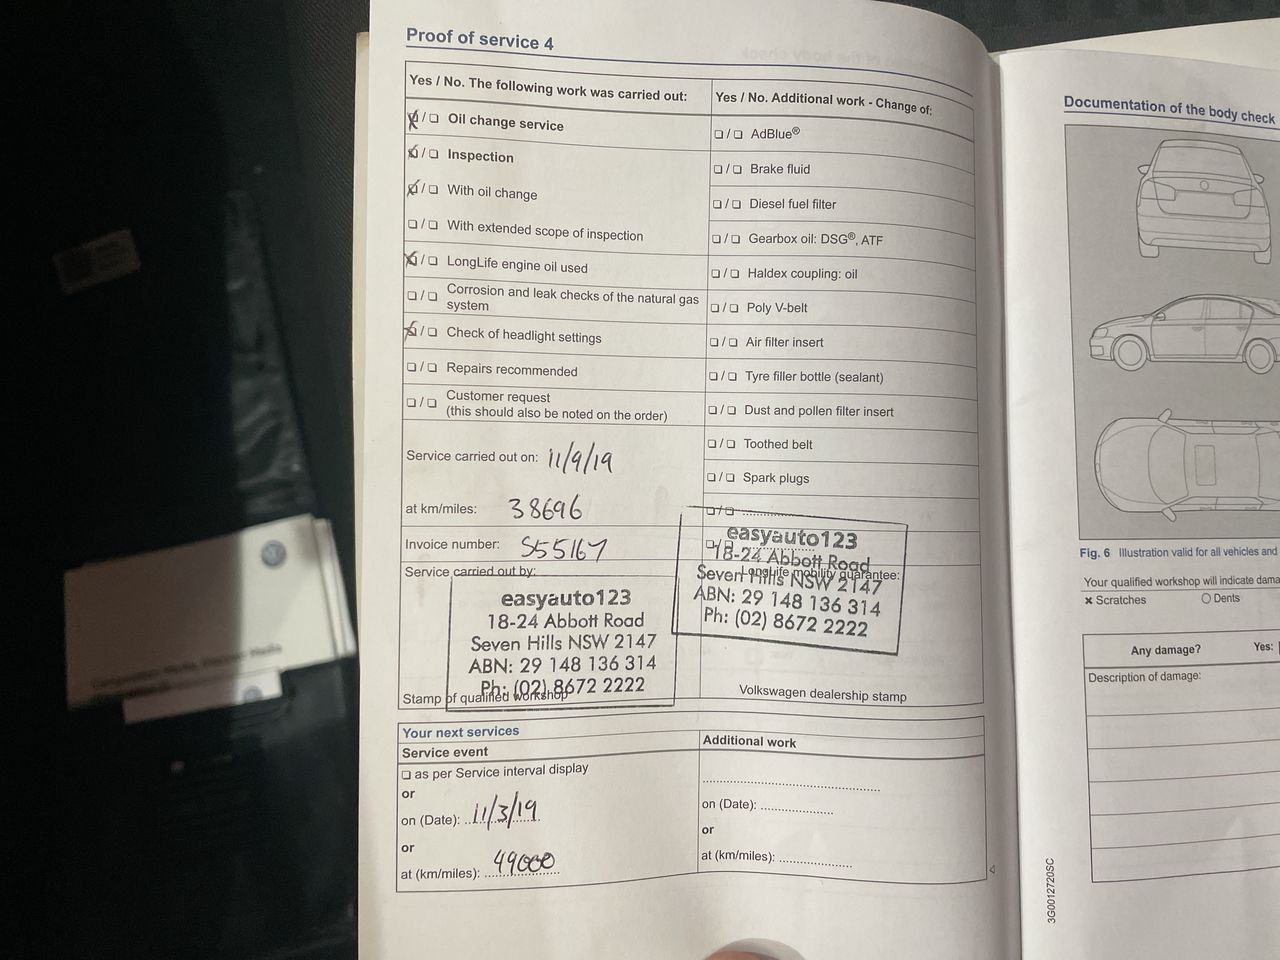 Proof of service 4
Yes / No. The following work was carried out:
☒/❑ Oil change service
☒/❑ Inspection
☒/❑ With oil change
❑/❑ With extended scope of inspection
☒/❑ LongLife engine oil used
❑/❑ Corrosion and leak checks of the natural gas
system
☒/❑ Check of headlight settings
❑/❑ Repairs recommended
❑/❑ Customer request
(this should also be noted on the order)
Service carried out on: 11/9/19
at km/miles: 38696
Invoice number: S55167
Service carried out by:
easyauto123
18-24 Abbott Road
Seven Hills NSW 2147
ABN: 29 148 136 314
Ph: (02) 8672 2222
Stamp of qualified workshop
Yes / No. Additional work - Change of:
❑/❑ AdBlue®
❑/❑ Brake fluid
❑/❑ Diesel fuel filter
❑/❑ Gearbox oil: DSG®, ATF
❑/❑ Haldex coupling: oil
❑/❑ Poly V-belt
❑/❑ Air filter insert
❑/❑ Tyre filler bottle (sealant)
❑/❑ Dust and pollen filter insert
❑/❑ Toothed belt
❑/❑ Spark plugs
❑/❑ ....................
❑/❑
easyauto123
18-24 Abbott Road
LongLife mobility guarantee:
Seven Hills NSW 2147
ABN: 29 148 136 314
Ph: (02) 8672 2222
Volkswagen dealership stamp
Your next services
Service event
❑ as per Service interval display
or
on (Date): 11/3/19
or
at (km/miles): 49000
Additional work
on (Date): ....................
or
at (km/miles): ....................
Documentation of the body check
Fig. 6 Illustration valid for all vehicles and
Your qualified workshop will indicate dama
× Scratches
O Dents
Any damage? Yes:
Description of damage:
3G0012720SC